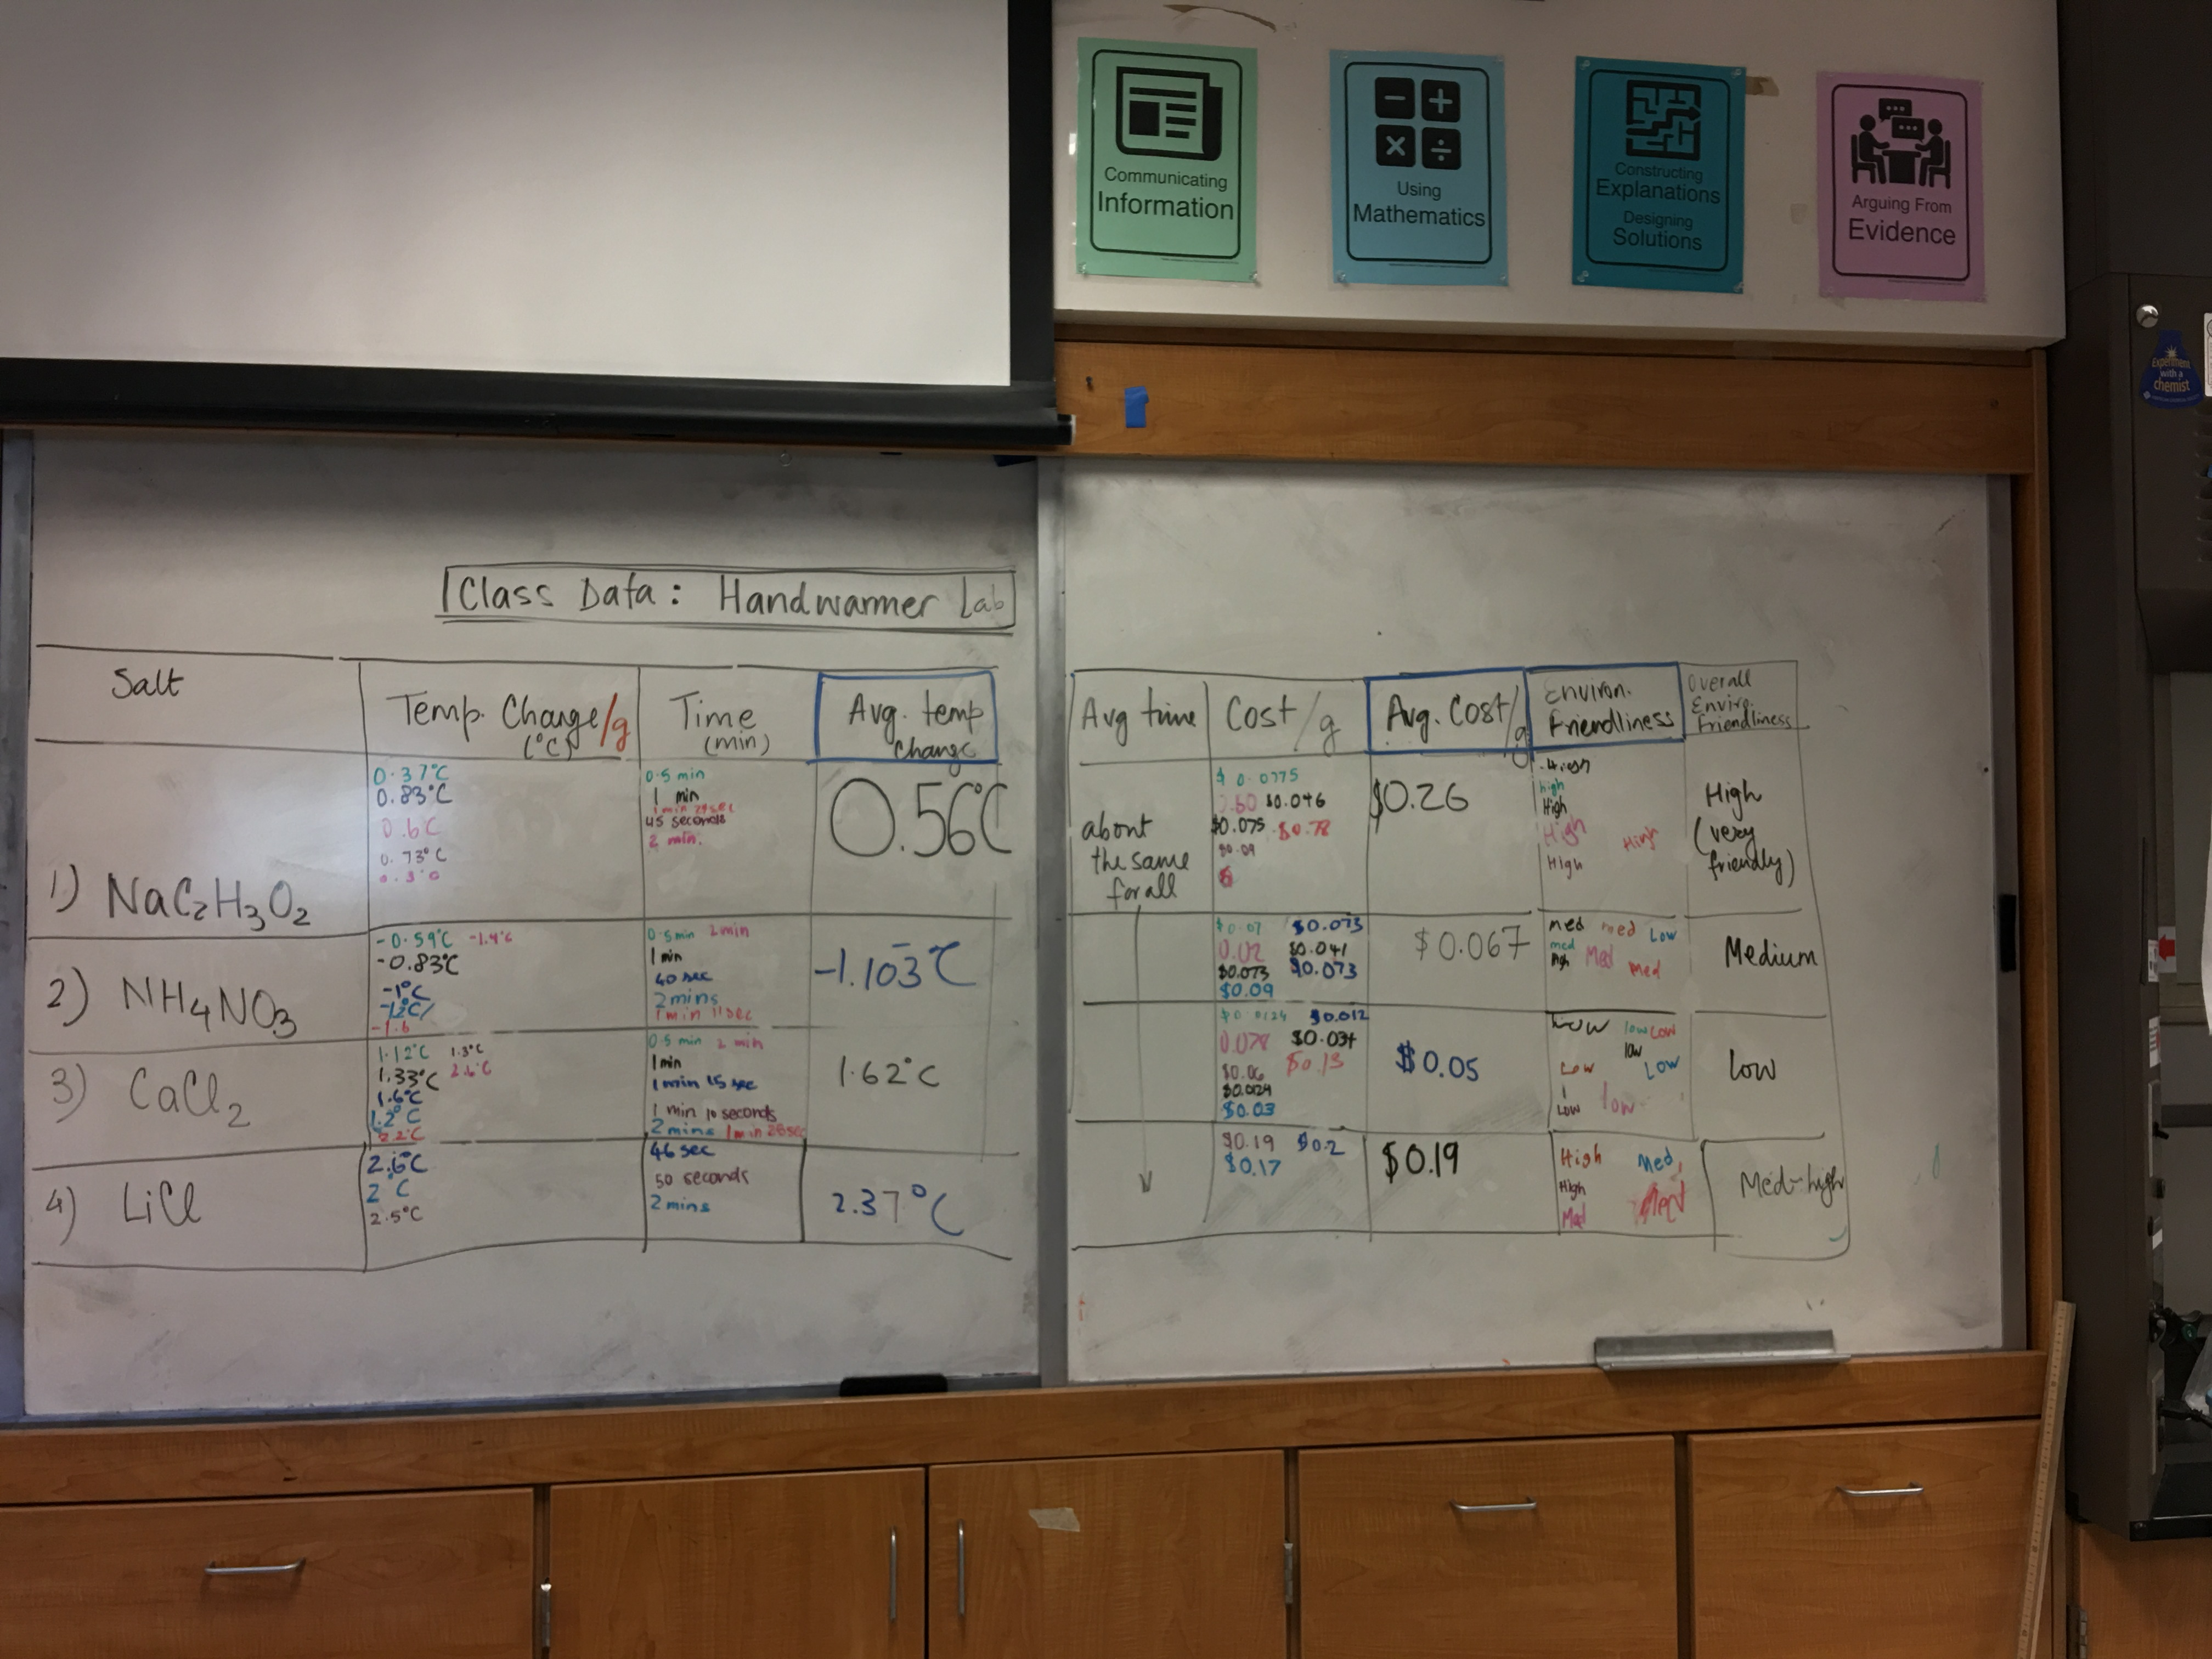 Communicating
Information
Using
Mathematics
Constructing
Explanations
Designing
Solutions
Arguing From
Evidence
Experiment
with a
chemist
Class Data: Handwarmer Lab
Salt
Temp. Change/g
(°C)
Time
(min)
Avg. temp
change
1) NaC2H3O2
0.37°C
0.83°C
0.6°C
0.73°C
0.3°C
0.5 min
1 min
1 min 29sec
45 seconds
2 min.
0.56°C
2) NH4NO3
-0.59°C -1.4°C
-0.83°C
-1°C
-1.6
0.5min 2min
1 min
40 sec
2mins
1min 11sec
-1.103°C
3) CaCl2
1.12°C 1.3°C
1.33°C 2.6°C
1.6°C
1.2°C
2.2°C
0.5 min 2 min
1 min
1 min 15 sec
1 min 10 seconds
2mins 1min 28sec
1.62°C
4) LiCl
2.6°C
2°C
2.5°C
46 sec
50 seconds
2mins
2.37°C
Avg time
Cost/g
Avg. Cost/g
Environ.
Friendliness
Overall
Enviro.
Friendliness
about
the same
for all
$0.0775
0.60 $0.046
$0.075 $0.78
$0.09
$0.26
High
high
High
High High
High
High
(very
friendly)
$0.07 $0.073
0.02 $0.041
$0.073 $0.073
$0.09
$0.067
med med Low
med
high Med med
Medium
$0.0124 $0.012
0.078 $0.034
$0.06 $0.13
$0.0124
$0.03
$0.05
Low low Low
low
Low Low
Low low
low
$0.19 $0.2
$0.17
$0.19
High Med
High
Med Med
Med-high